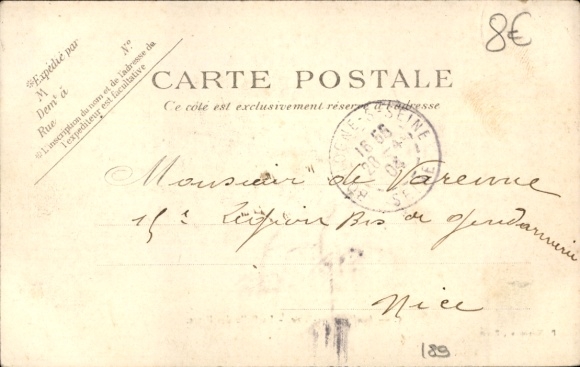 8€
Expédié par
M N°
Demt à
Rue
L'inscription du nom et de l'adresse de
l'expéditeur est facultative
CARTE POSTALE
Ce côté est exclusivement réservé à l'adresse
BOULOGNE-S-SEINE
18 55
20 - 4
04
SEINE
Monsieur de Varenne
15e Légion Bis de Gendarmerie
Nice
189